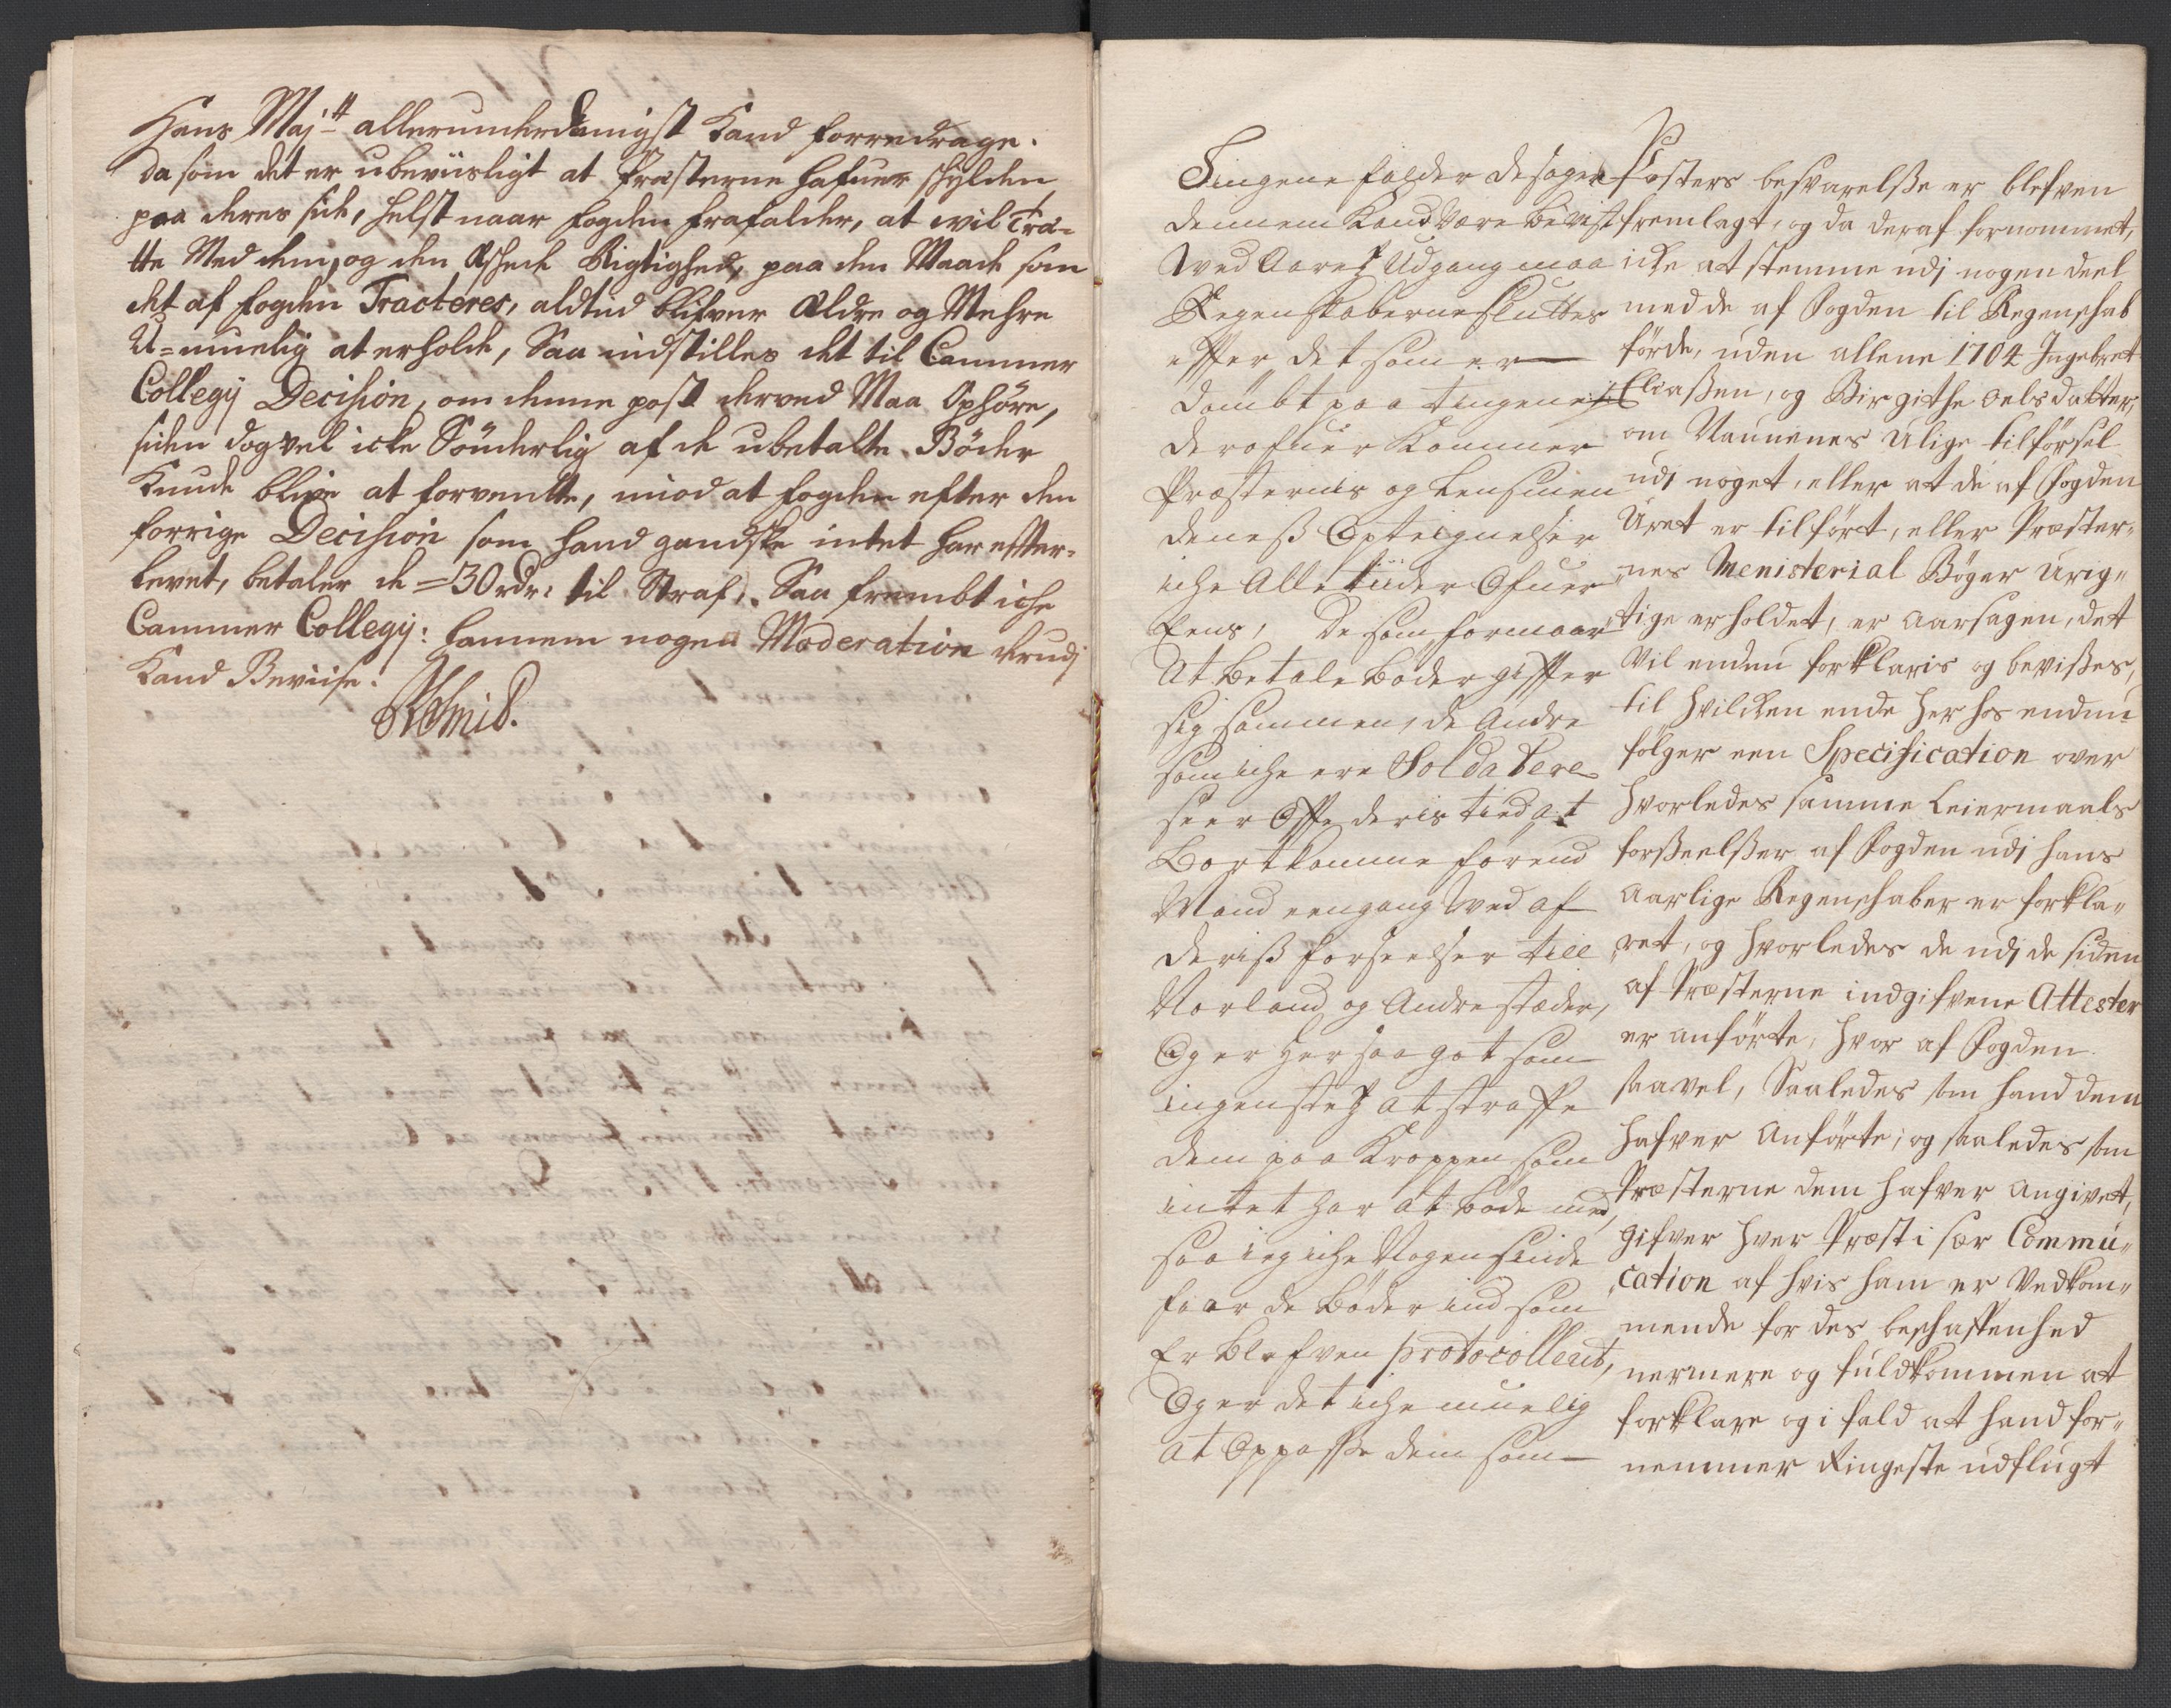 Hans Maj:tt allerunderdanigst Kand forredrage.
da som det er ubeviisligt at Præsterne hafuer schylden
paa deres side, helst naar fogden frafalder, at vil Træ-
tte Med dem, og den Æschede Rigtighed, paa den Maade som
det af fogden Tracteres, altiid blifver Ældre og Mehre
U=muelig at erholde, Saa indstilles det til Cammer
Collegij Decision, om denne post derved Maa Ophöre,
siden dog vel icke Sönderlig af de ubetalte Böder
Kunde blive at forvendte, imod at fogden efter den
forrige Decision som hand gandske intet har efter-
levet, betaler de =30 rdr: til Straf, Saa frembt iche
Cammer Collegij: hannem nogen Moderation derudj
Kand Beviise.
Schmid.
Tingene falder de sager
dennem Kand være bevist
Wed Aaretz Udgang maa
Regenskaberne sluttes
effter det som er
dömbt paa tingene
derofuer Kommer
Præsternis og Lensmen
deness Opteignelser
iche Alle tiider Ofuer
Eens, de som formaar
At betale böder giffter
sig sammen, de Andre
som iche ere Soldatere
seer Offte deris tied at
Bortkomme förend
Mand eengang Wed af
deriss forseelser till
Norland og Andre stæder,
Og er her saa got som
ingenstetz at straffe
dem paa Kroppen som
intet har at böde med,
saa ieg iche Nogensinde
faar de böder ind som
Er blefven protocollerit,
Og er det iche muelig
at Oppasse dem som
Posters besvarelsse er blefven
fremlagt, og da deraf fornommet,
icke at stemme udj nogen deel
med de af Fogden til Regenschab
förde, uden allene 1704 Ingebret
Eliassen, og Birgithe Oelsdatter,
om Naunenes Ulige tilförsel
udj noget, eller at de af Fogden
Uret er tilfört, eller Præster-
nes Menisterial Böger Urig-
tige er holdet, er Aarsagen, det
Vil endnu forklaris og bevisses,
til hvilcken ende her hos endnu
fölger een Specification over
hvorledes samme Leiermaals
forsseelsser af Fogden udj hans
Aarlige Regenschaber er forkla-
ret, og hvorledes de udj de siden
af Præsterne indgifvene Attester
er anförte, hvor af Fogden
saavel, Saaledes som hand dem
hafver Anförte, og saaledes som
Præsterne dem hafver angivet,
gifver hver Præst i sær Commu-
cation af hvis ham er Vedkom-
mende for des beschaffenhed
nermere og fuldkommen at
forklare og i fald at hand for-
nemmer Ringeste udflugt